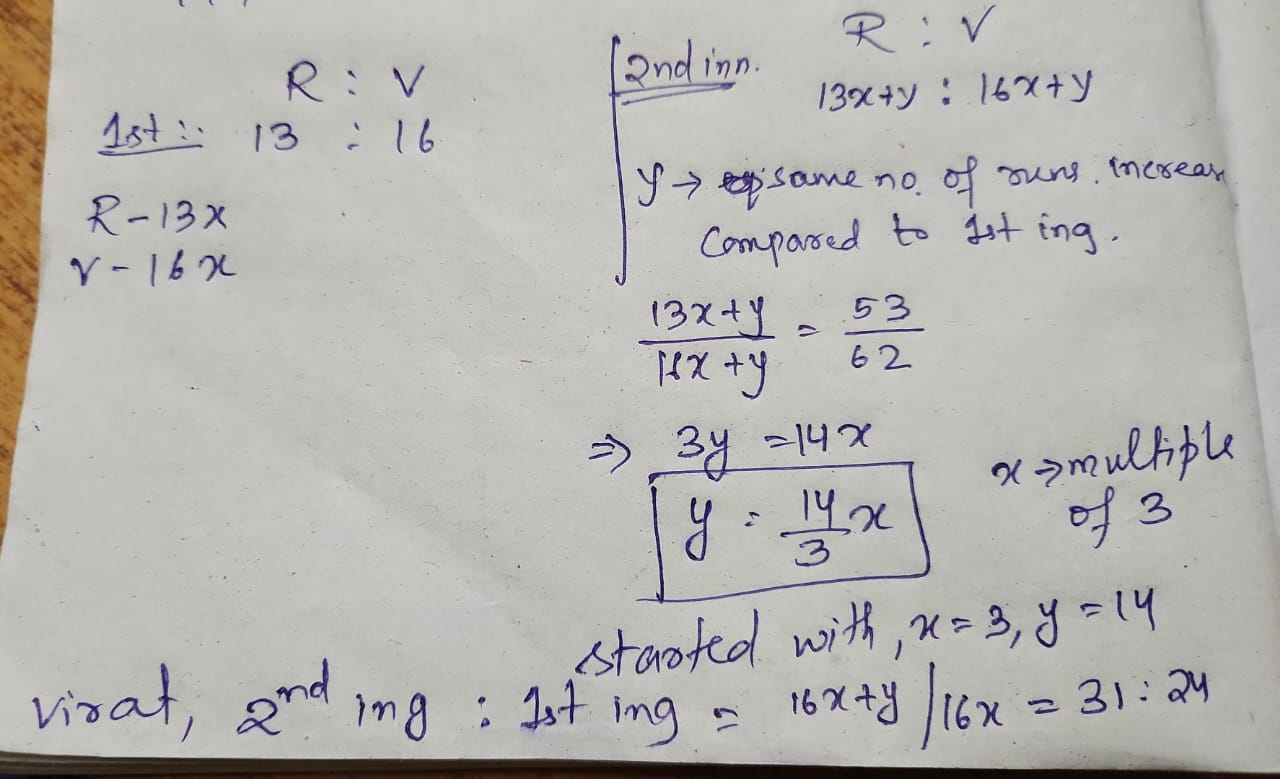 R : V
1st :. 13 : 16
R - 13x
V - 16x
2nd inn.
R : V
13x+y : 16x+y
y → same no. of runs. increase
Compared to 1st ing.
13x+y / 16x+y = 53 / 62
⇒ 3y = 14x
y = 14/3 x
x → multiple
of 3
started with, x = 3, y = 14
Virat, 2nd ing : 1st ing = 16x+y / 16x = 31 : 24